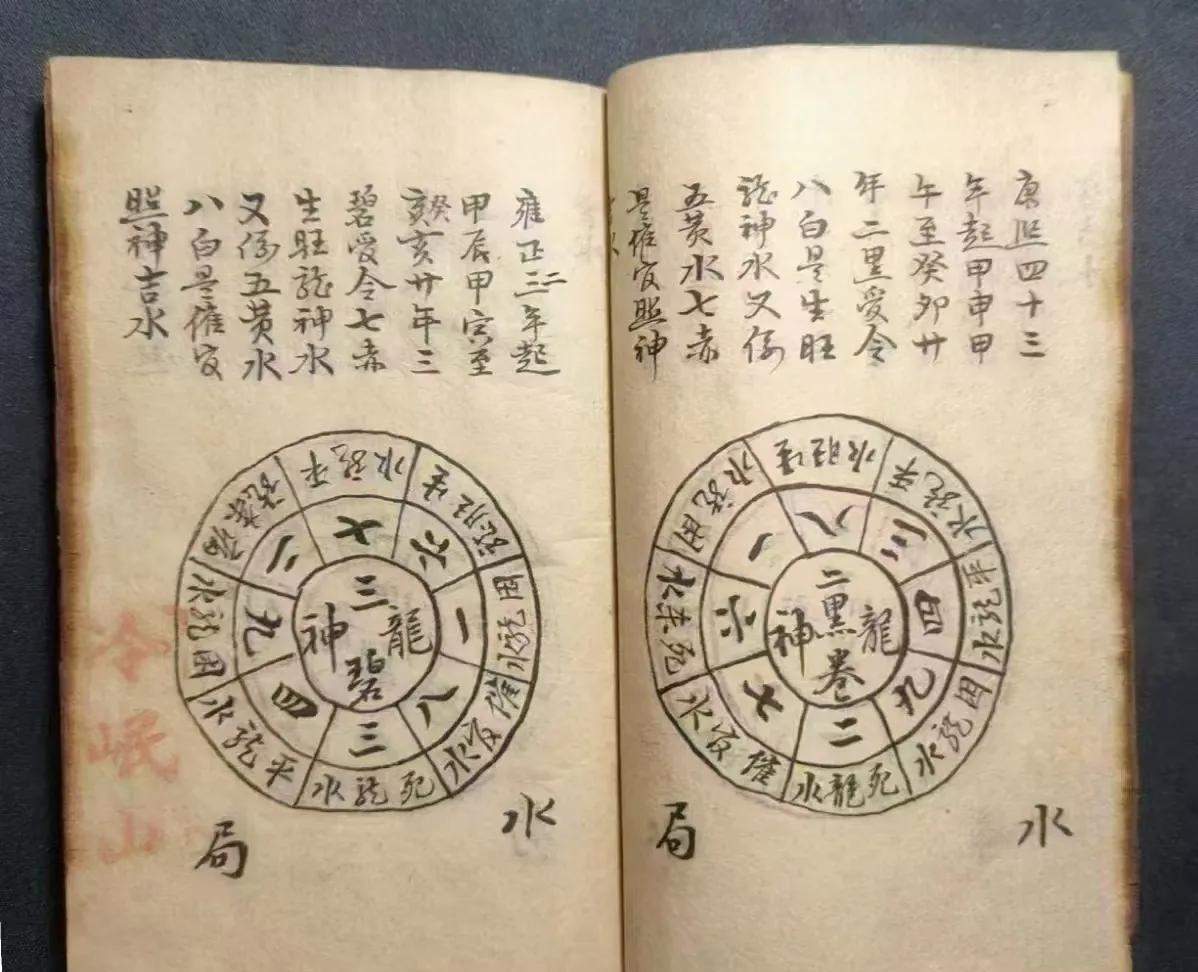 康熙四十三
年起甲申甲
午至癸卯廿
年二黑受令
八白是生旺
龍神水又係
五黄水七赤
是催官照神
生旺水
平龍水
平龍水
囚龍水
死龍水
催官水
死煞水
囚龍水
八
三
四
九
二
七
六
一
二黑卷
龍神
水局
雍正二年起
甲辰甲寅至
癸亥廿年三
碧受令七赤
生旺龍神水
又係五黄水
八白是催官
照神吉水
平龍水
生旺龍
囚龍水
催官水
死龍水
平龍水
囚龍水
七
六
一
八
三
四
九
二
三碧
龍神
水局
冷岷山